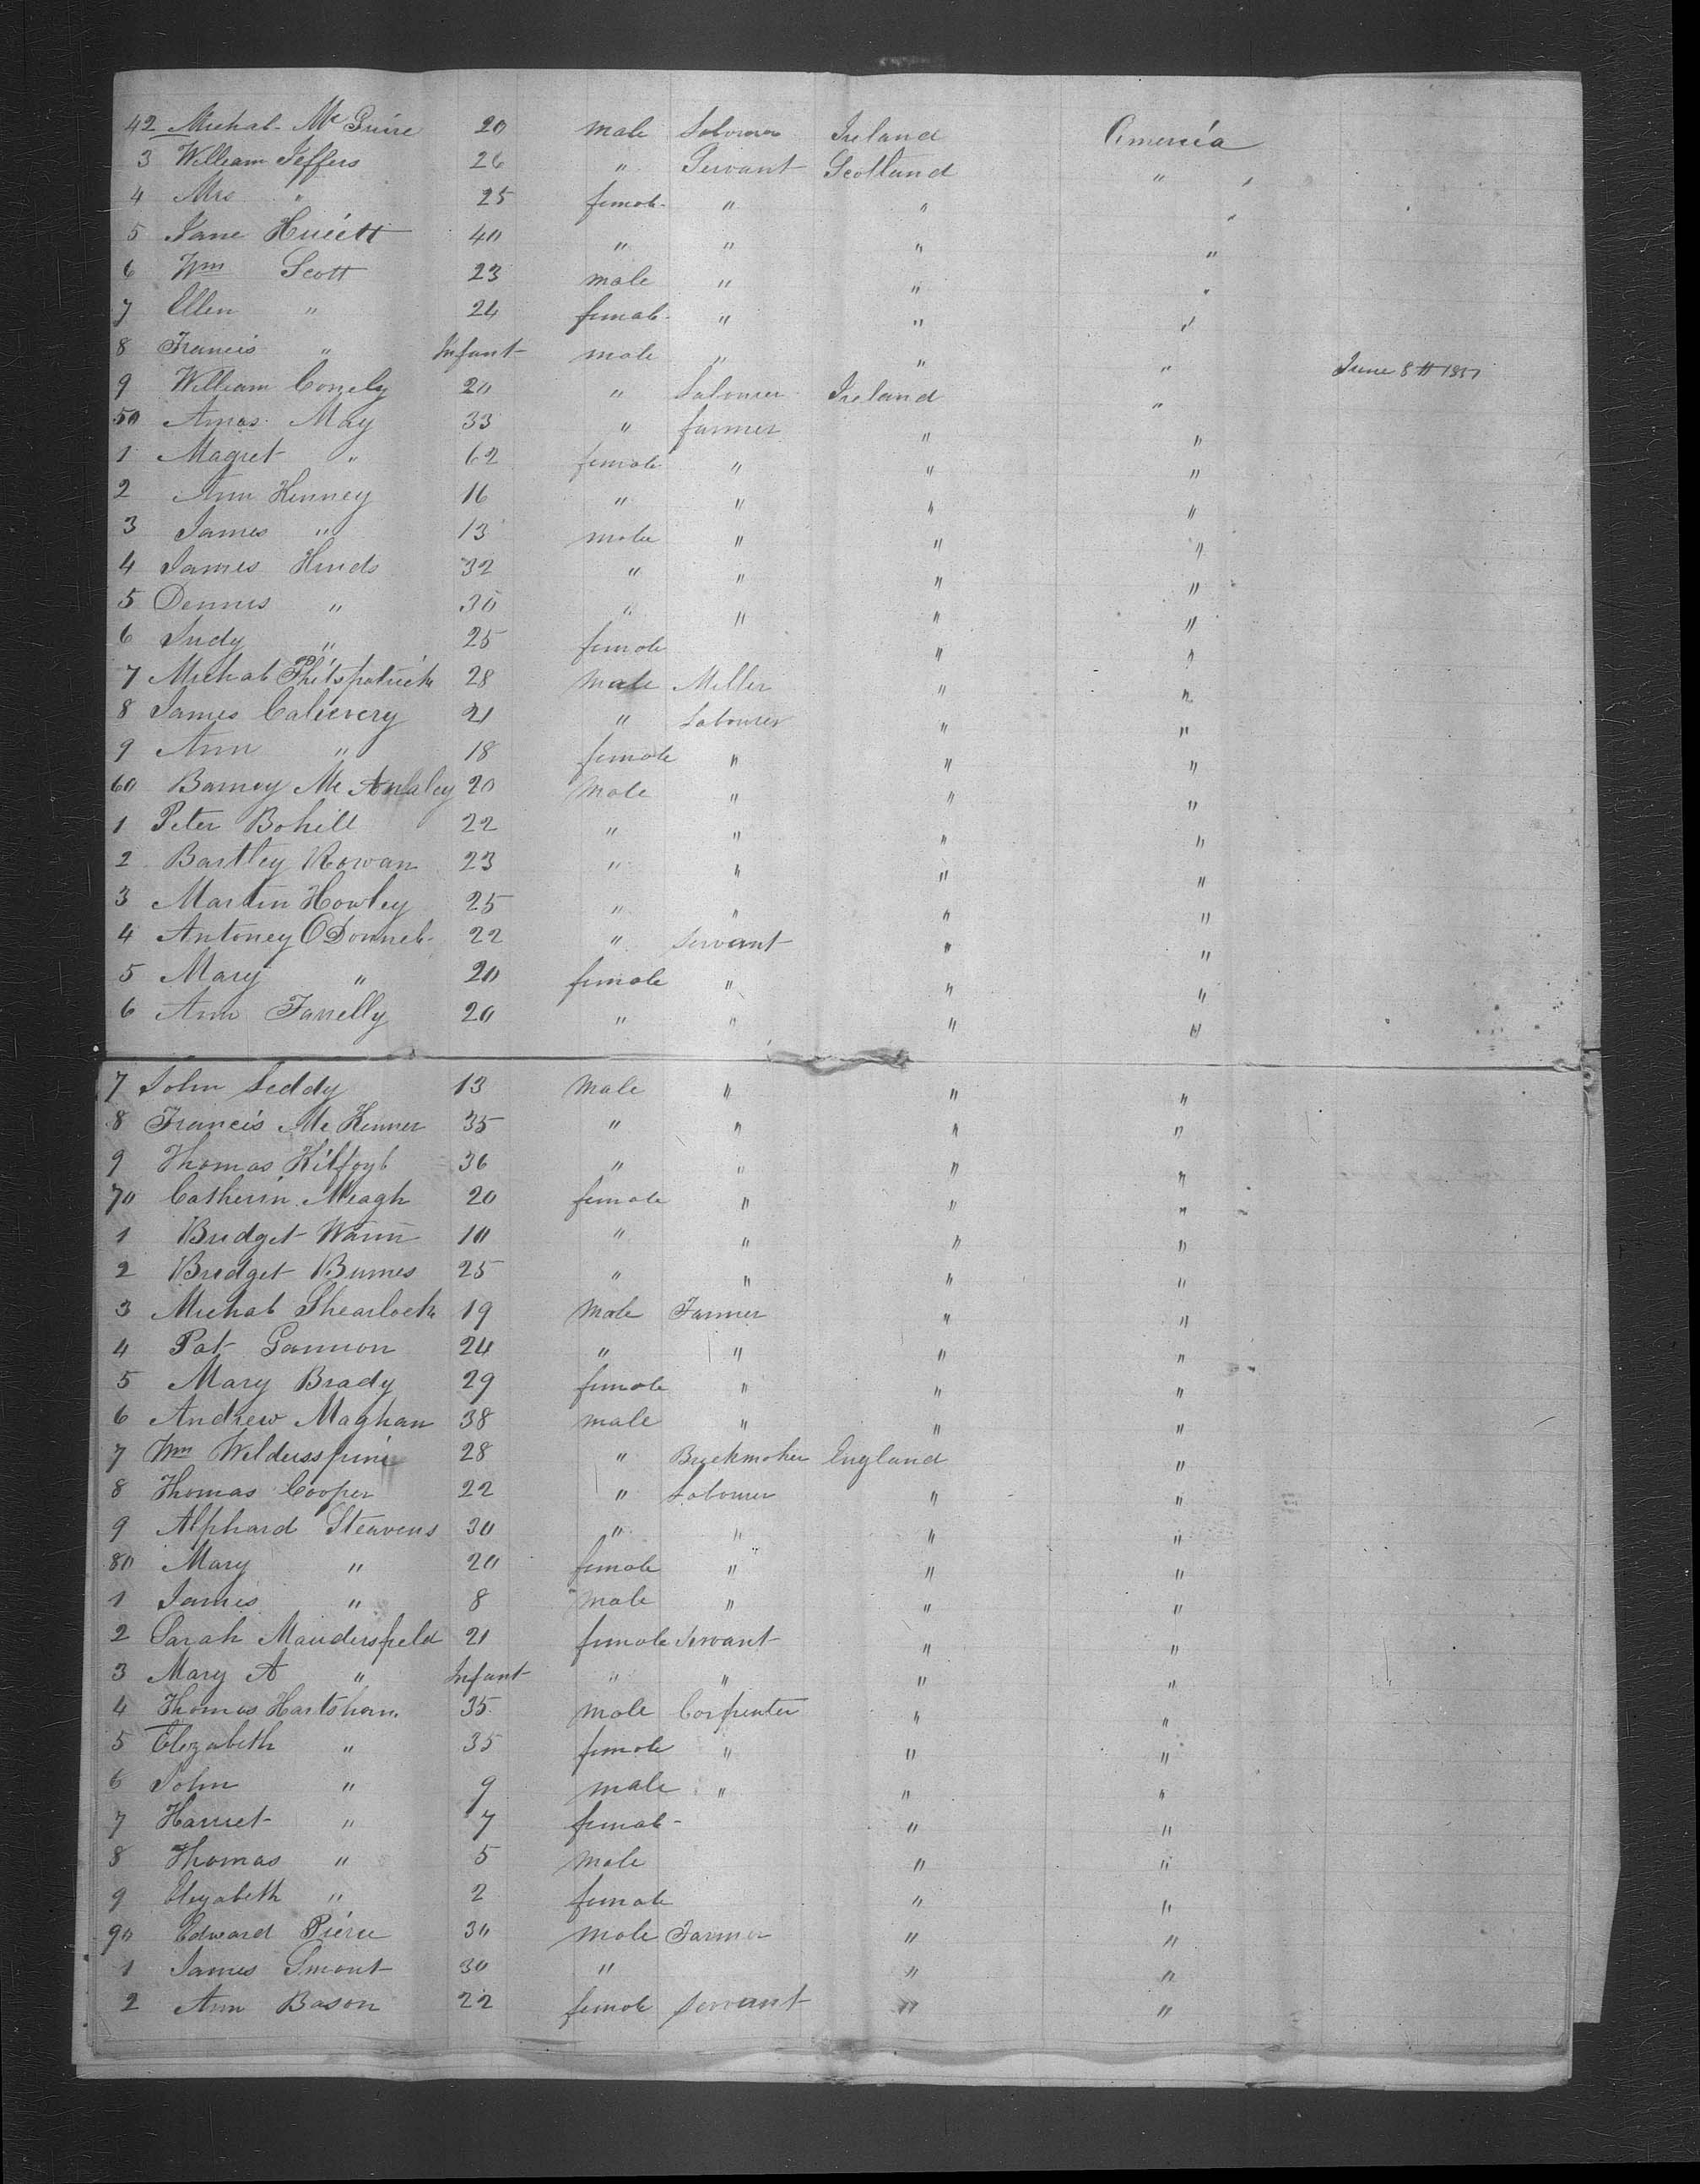 42 Michal Mc Guire 20 male Labourer Ireland America
3 William Jeffers 26 " Servant Scotland "
4 Mrs " 25 female " " "
5 Jane 40 " " " "
6 Wm Scott 23 male " " "
7 Ellen " 24 female " " "
8 Francis " Infant male " " " June 8th 1851
9 William Conely 20 " Labourer Ireland "
50 Amos May 33 " farmer " "
1 Magret " 62 female " " "
2 Ann Kenney 16 " " " "
3 James " 13 male " " "
4 James Hinds 32 " " " "
5 Dennis " 30 " " " "
6 Judy " 25 female " "
7 Michal Phitspatrick 28 Male Miller " "
8 James Calievery 21 " Labourer " "
9 Ann " 18 female " " "
60 Barney Mc Analey 20 Male " " "
1 Peter Bohill 22 " " " "
2 Bartley Rowan 23 " " " "
3 Martin Howley 25 " " " "
4 Antoney O Donnel 22 " Servant " "
5 Mary " 20 female " " "
6 Ann Farrelly 20 " " " "
7 John Leddy 13 Male " " "
8 Francis Mc Kenner 35 " " " "
9 Thomas Kilfoyl 36 " " " "
70 Catherin Meagh 20 female " " "
1 Bridget 10 " " " "
2 Bridget Burnes 25 " " " "
3 Michal Shearlock 19 Male Farmer " "
4 Pat Gannon 24 " " " "
5 Mary Brady 29 female " " "
6 Andrew Maghan 38 male " " "
7 Wm Wildersspine 28 " Brickmaker England "
8 Thomas Cooper 22 " Labourer " "
9 Alphard Steavens 30 " " " "
80 Mary " 20 female " " "
1 James " 8 Male " " "
2 Sarah Maudersfield 21 female Servant " "
3 Mary A " Infant " " " "
4 Thomas Hartshorn 35 Male Carpenter " "
5 Elezabeth " 35 female " " "
6 John " 9 male " " "
7 Harriet " 7 female " "
8 Thomas " 5 Male " "
9 Elezabeth " 2 female " "
90 Edward Pierce 30 Male Farmer " "
1 James Smout 30 " " "
2 Ann Bason 22 female Servant " "